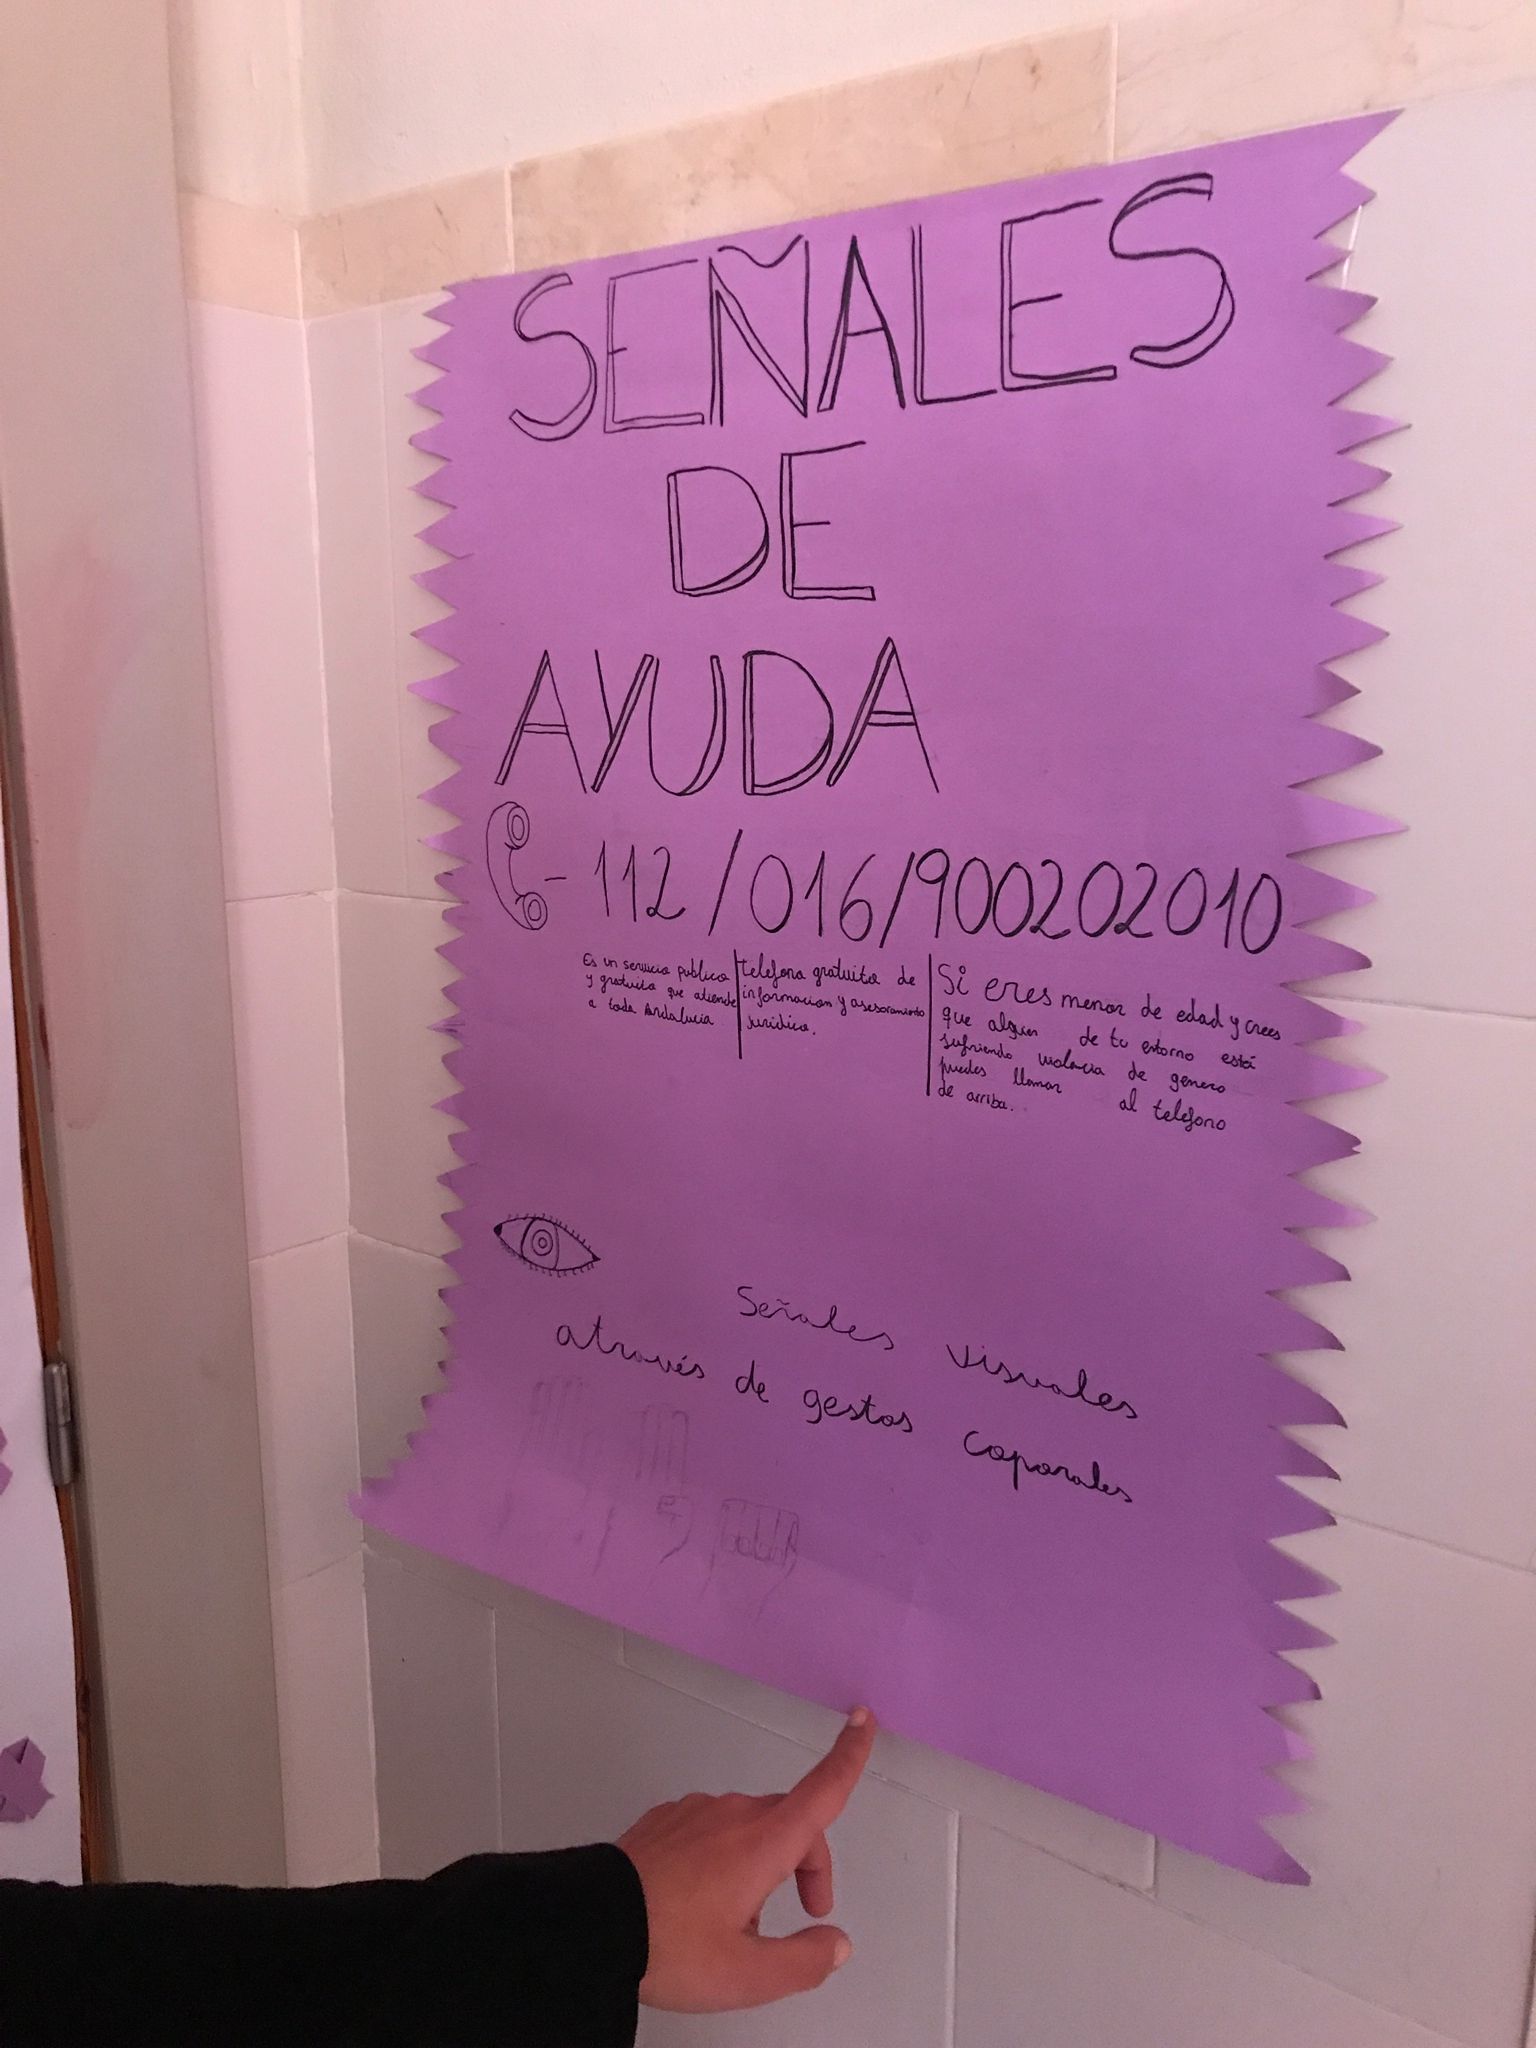 SEÑALES
DE
AYUDA
- 112 / 016 / 900202010
Es un servicio publico
y gratuito que atiende
a toda Andalucia
telefono gratuito de
informacion y asesoramiento
juridico.
Si eres menor de edad y crees
que alguen de tu entorno está
sufriendo violencia de genero
puedes llamar al telefono
de arriba.
Señales visuales
através de gestos coporales